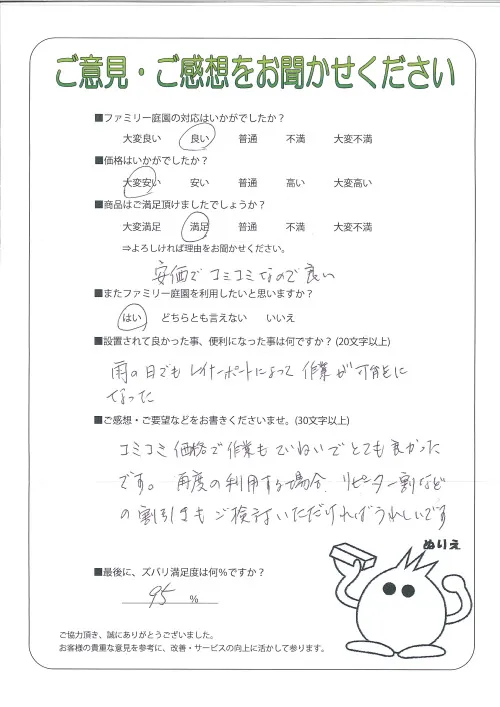 ご意見・ご感想をお聞かせください
■ファミリー庭園の対応はいかがでしたか？
大変良い 良い 普通 不満 大変不満
■価格はいかがでしたか？
大変安い 安い 普通 高い 大変高い
■商品はご満足頂けましたでしょうか？
大変満足 満足 普通 不満 大変不満
⇒よろしければ理由をお聞かせください。
安価でコミコミなので良い
■またファミリー庭園を利用したいと思いますか？
はい どちらとも言えない いいえ
■設置されて良かった事、便利になった事は何ですか？(20文字以上)
雨の日でもレイナーポートによって作業が可能に
なった
■ご感想・ご要望などをお書きくださいませ。(30文字以上)
コミコミ価格で作業もていねいでとても良かった
です。再度の利用する場合、リピーター割など
の割引きもご検討いただければうれしいです
ぬりえ
■最後に、ズバリ満足度は何%ですか？
95 %
ご協力頂き、誠にありがとうございました。
お客様の貴重な意見を参考に、改善・サービスの向上に活かして参ります。